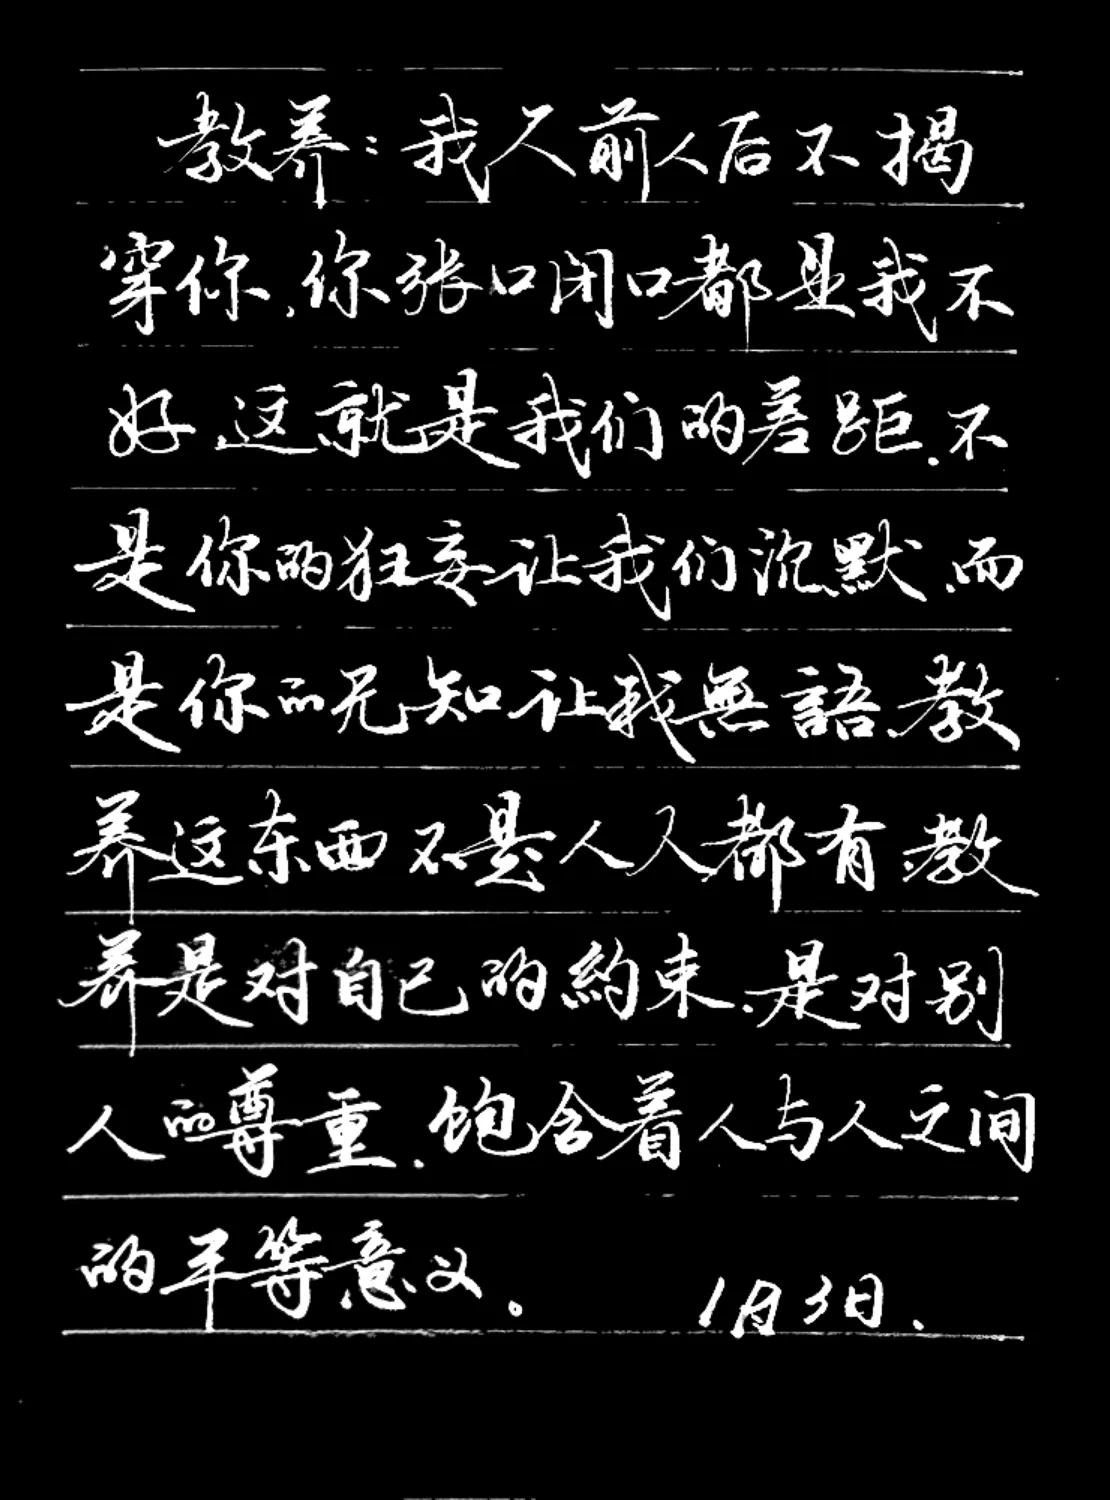 教养：我人前人后不揭
穿你,你张口闭口都是我不
好,这就是我们的差距.不
是你的狂妄让我们沉默,而
是你的无知让我無語,教
养这东西不是人人都有,教
养是对自己的約束,是对别
人的尊重,饱含着人与人之间
的平等意义。 1月3日.